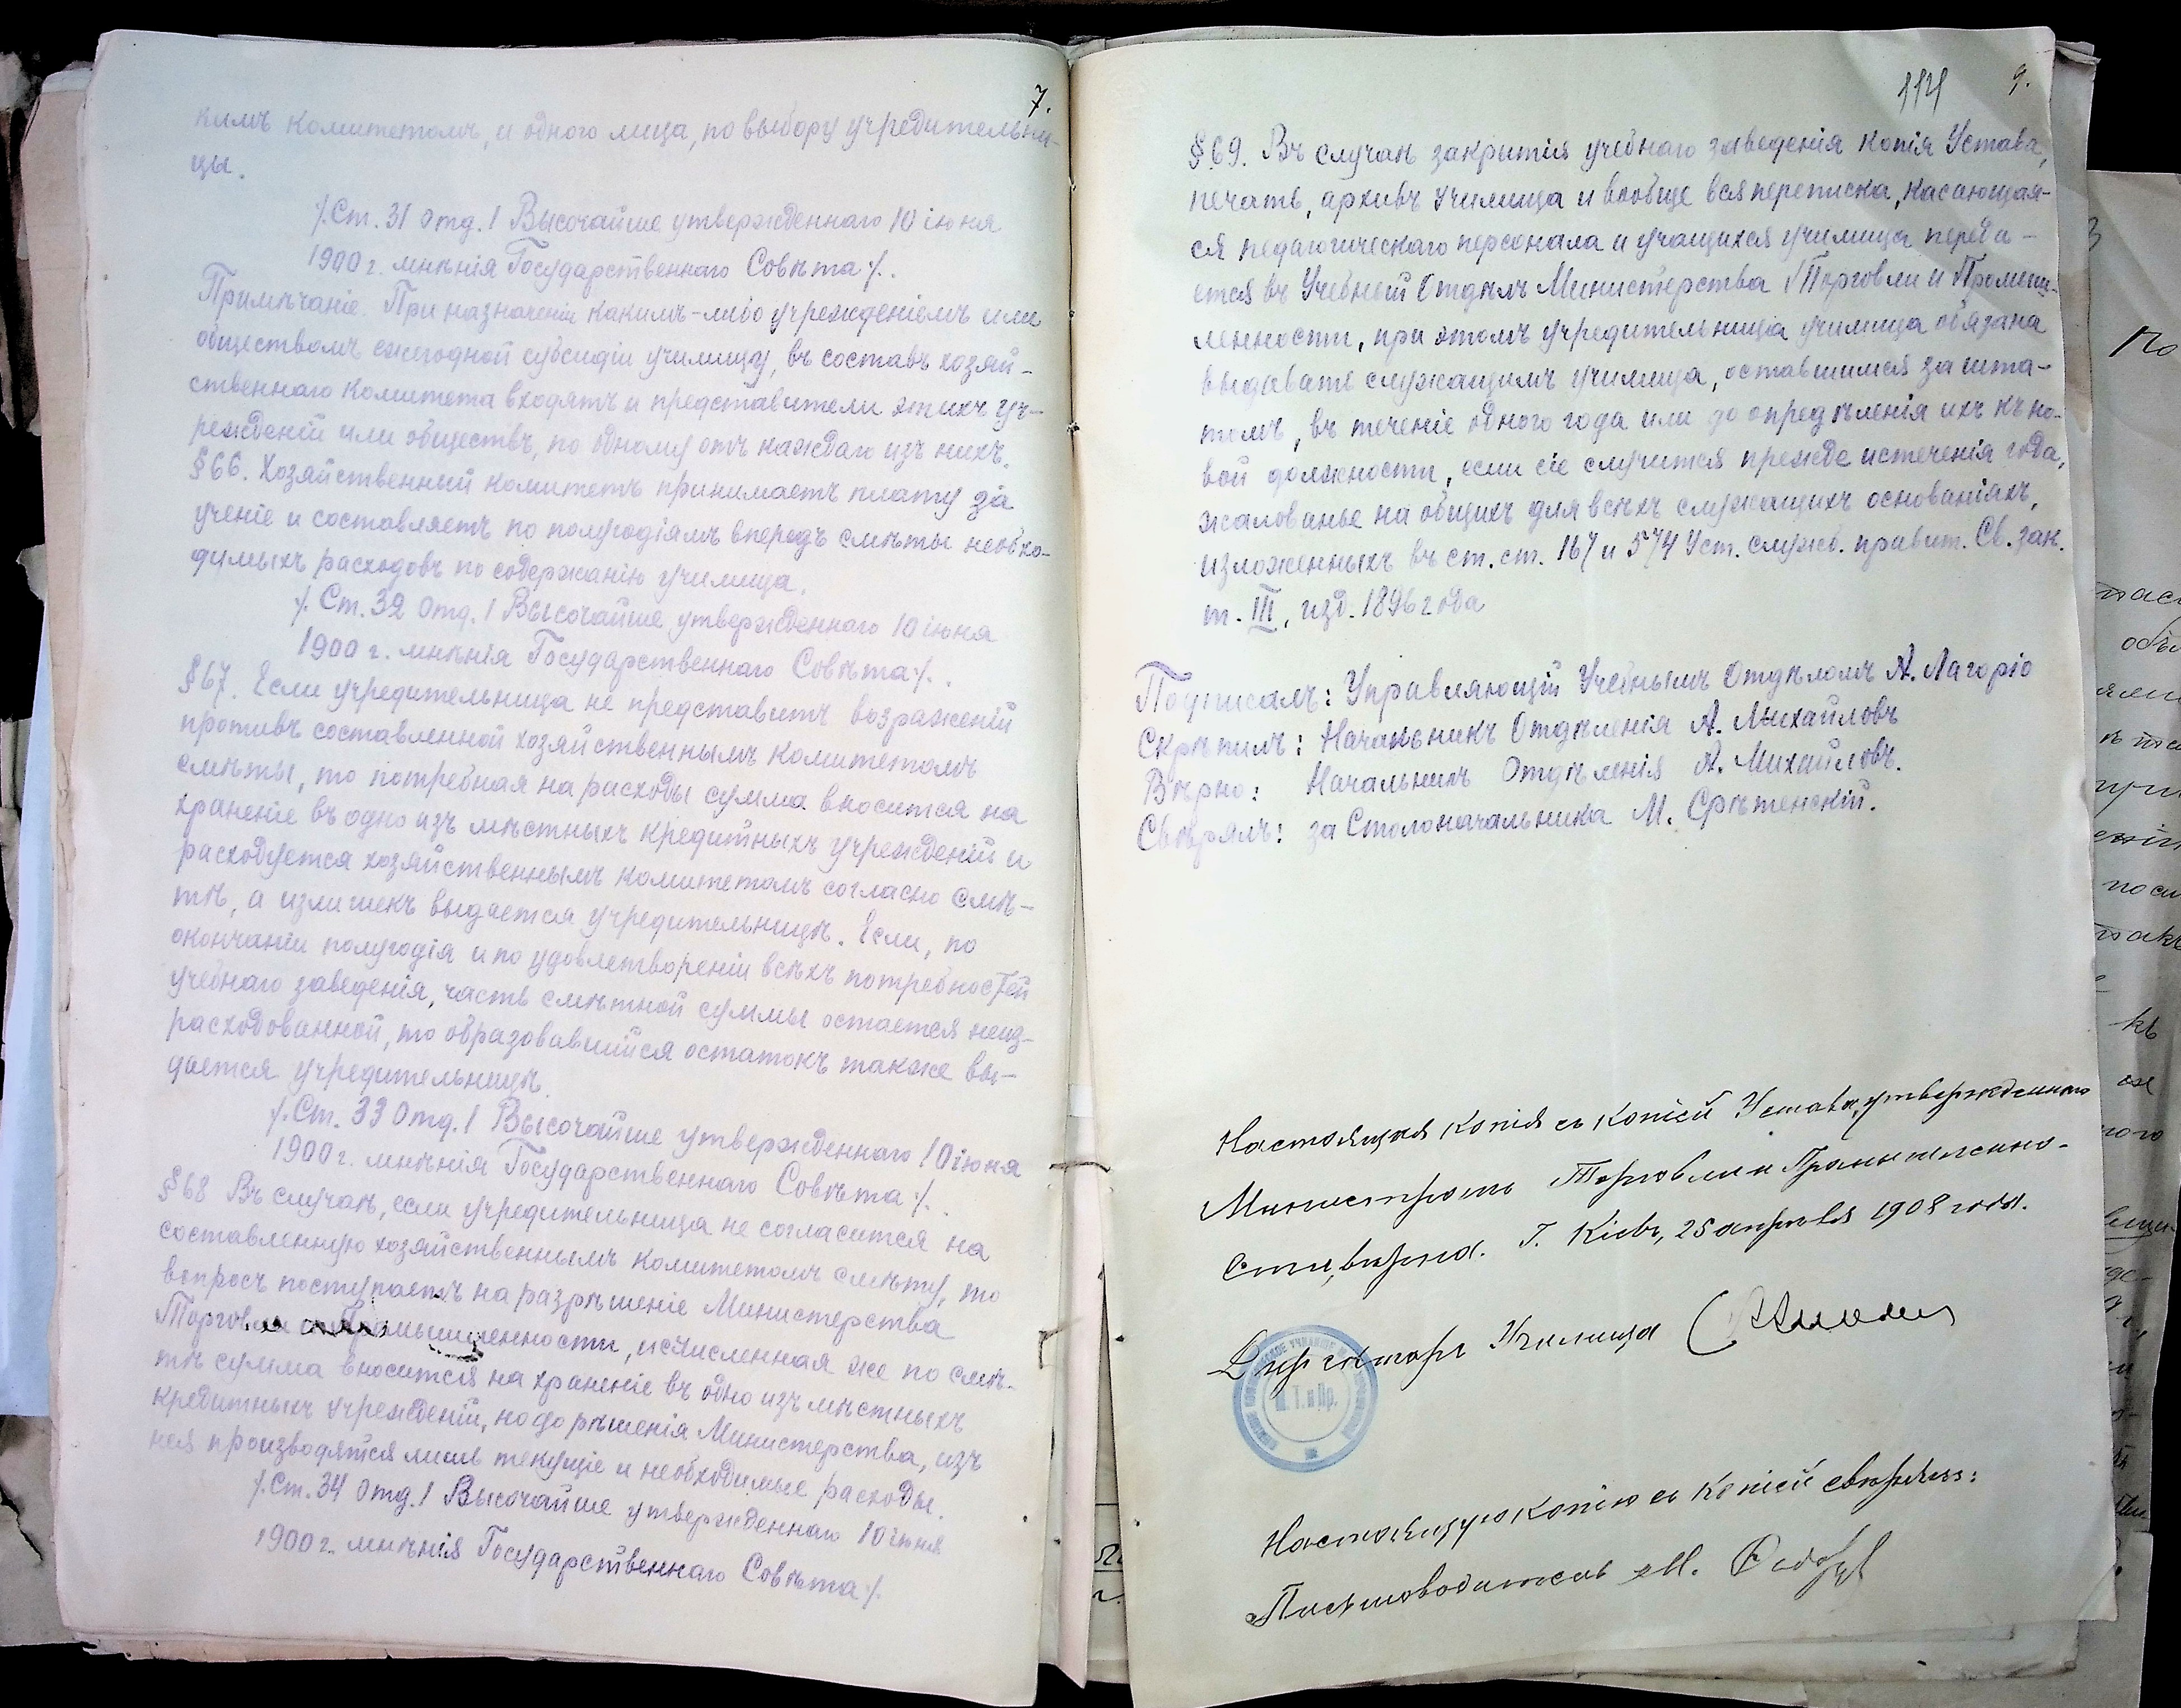 7.
кимъ комитетомъ, и одного лица, по выбору учредительни-
цы.
/.Ст. 31 Отд. I Высочайше утвержденнаго 10 іюня
1900 г. мнѣнія Государственнаго Совѣта/.
Примѣчаніе. При назначеніи какимъ-либо учрежденіемъ или
обществомъ ежегодной субсидіи училищу, въ составъ хозяй-
ственнаго комитета входятъ и представители этихъ уч-
режденій или обществъ, по одному отъ каждаго изъ нихъ.
§66. Хозяйственный комитетъ принимаетъ плату за
ученіе и составляетъ по полугодіямъ впередъ смѣты необхо-
димыхъ расходовъ по содержанію училища.
/.Ст. 32 Отд. I Высочайше утвержденнаго 10 іюня
1900 г. мнѣнія Государственнаго Совѣта/.
§67. Если учредительница не представитъ возраженій
противъ составленной хозяйственнымъ комитетомъ
смѣты, то потребная на расходы сумма вносится на
храненіе въ одно изъ мѣстныхъ кредитныхъ учрежденій и
расходуется хозяйственнымъ комитетомъ согласно смѣ-
тѣ, а излишекъ выдается учредительницѣ. Если, по
окончаніи полугодія и по удовлетвореніи всѣхъ потребностей
учебнаго заведенія, часть смѣтной суммы остается неиз-
расходованной, то образовавшійся остатокъ также вы-
дается учредительницѣ.
/.Ст. 33 Отд. I Высочайше утвержденнаго 10 іюня
1900 г. мнѣнія Государственнаго Совѣта/.
§68 Въ случаѣ, если учредительница не согласится на
составленную хозяйственнымъ комитетомъ смѣту, то
вопросъ поступаетъ на разрѣшеніе Министерства
Торговли и Промышленности, исчисленная же по смѣ-
тѣ сумма вносится на храненіе въ одно изъ мѣстныхъ
кредитныхъ учрежденій, но до рѣшенія Министерства, изъ
нея производятся лишь текущіе и необходимые расходы.
/.Ст. 34 Отд. I Высочайше утвержденнаго 10 іюня
1900 г. мнѣнія Государственнаго Совѣта/.
9.
§69. Въ случаѣ закрытія учебнаго заведенія копія Устава,
печать, архивъ училища и вообще вся переписка, касающая-
ся педагогическаго персонала и учащихся училища переда-
ется въ Учебный Отдѣлъ Министерства Торговли и Промыш-
ленности, при этомъ учредительница училища обязана
выдавать служащимъ училища, оставшимся за шта-
томъ, въ теченіе одного года или до опредѣленія ихъ къ но-
вой должности, если сіе случится прежде истеченія года,
жалованье на общихъ для всѣхъ служащихъ основаніяхъ,
изложенныхъ въ ст. ст. 167 и 574 Уст. служб. правит. Св. зак.
т. III, изд. 1896 года
Подписалъ: Управляющій Учебнымъ Отдѣломъ А. Лагоріо
Скрѣпилъ: Начальникъ Отдѣленія А. Михайловъ
Вѣрно: Начальникъ Отдѣленія А. Михайловъ.
Свѣрялъ: за Столоначальника М. Срѣтенскій.
Настоящая копія съ копіей Устава, утвержденнаго
Министромъ Торговли и Промышленно-
сти, вѣрна. Г. Кіевъ, 25 апрѣля 1908 года.
Директоръ Училища
М. Т. и Пр.
Настоящую копію съ копіей свѣрялъ:
Письмоводитель М.